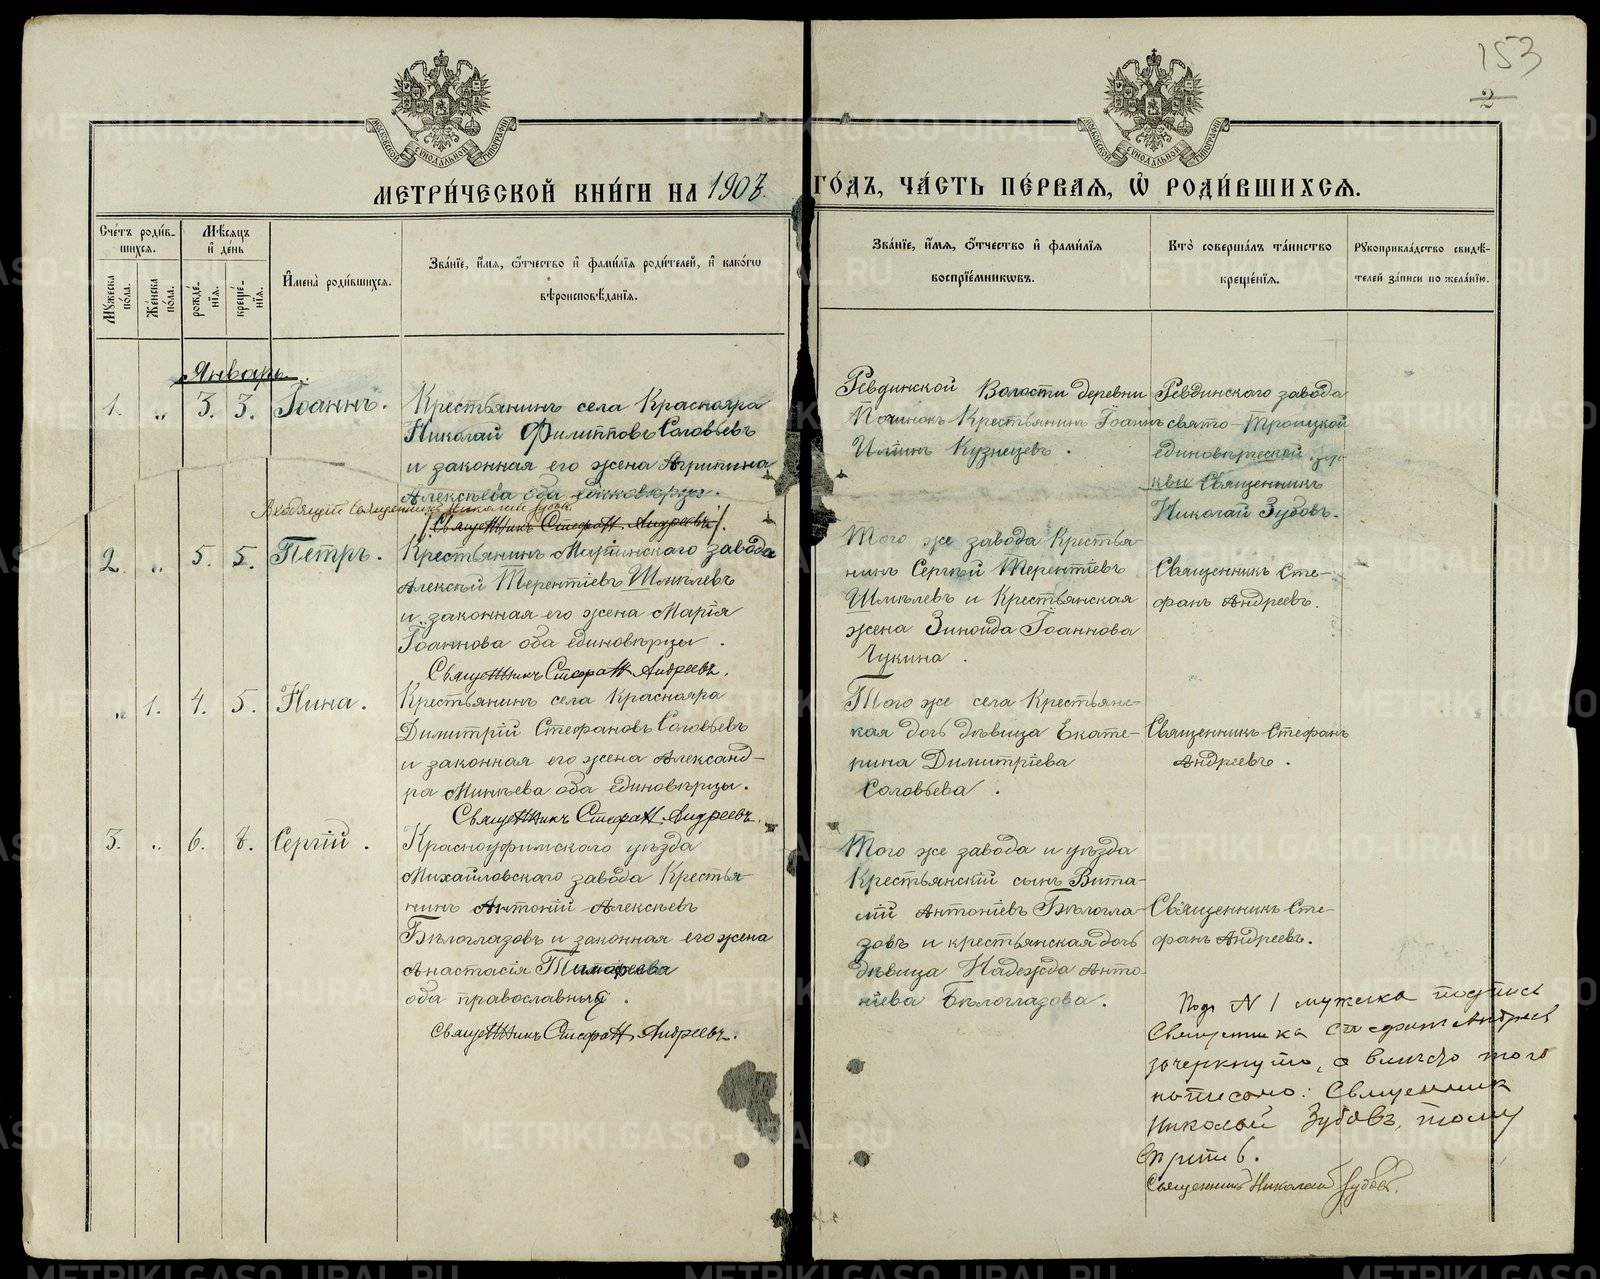 153
2
МОСКОВСКОЙ СѴНОДАЛЬНОЙ ТИПОГРАФІИ
МОСКОВСКОЙ СѴНОДАЛЬНОЙ ТИПОГРАФІИ
МЕТРИ́ЧЕСКОЙ КНИ́ГИ НА 1907. ГО́ДЪ, ЧА́СТЬ ПЕ́РВАЯ, Ѡ РОДИ́ВШИХСЯ.
Сче́тъ роди́в-
шихся.
Мѣ́сяцъ
и де́нь
Мꙋ́жеска
по́ла.
Же́нска
по́ла.
рожде́-
нїя.
креще́-
нїя.
И҆мена̀ роди́вшихся.
Зва́нїе, и҆́мя, ѻ҆́тчество и҆ фами́лїя роди́телей, и҆ како́гѡ
вѣроисповѣ́данїя.
Зва́нїе, и҆́мя, ѻ҆́тчество и҆ фами́лїя
воспрїе́мникѡвъ.
Кто̀ соверша́лъ та́инство
креще́нїя.
Рꙋкоприкла́дство свидѣ́-
телей за́писи по жела́нїю.
Январь.
1. „ 3. 3. Іоаннъ.
Крестьянинъ села Краснояра
Николай Филипповъ Соловьевъ
и законная его жена Агрипина
Алексѣева оба единовѣрцы.
Священникъ Николай Зубовъ.
/Священникъ Стефанъ Андреевъ/.
Ревдинской Волости деревни
Починокъ Крестьянинъ Іоаннъ
Кузнецевъ.
Ревдинскаго завода
свято-Троицкой
единовѣрческой цер-
кви Священникъ
Николай Зубовъ.
2. „ 5. 5. Петръ.
Крестьянинъ Маріинскаго завода
Алексѣй Терентіевъ Шмелевъ
и законная его жена Марія
Іоаннова оба единовѣрцы.
Священникъ Стефанъ Андреевъ.
Того же завода Крестья-
нинъ Сергѣй Терентіевъ
Шмелевъ и Крестьянская
жена Зиноида Іоаннова
Чукина.
Священникъ Сте-
фанъ Андреевъ.
„ 1. 4. 5. Нина.
Крестьянинъ села Краснояра
Димитрій Стефановъ Соловьевъ
и законная его жена Александ-
ра Минѣева оба единовѣрцы.
Священникъ Стефанъ Андреевъ.
Того же села Крестьянс-
кая дочь дѣвица Екате-
рина Димитріева
Соловьева.
Священникъ Стефанъ
Андреевъ.
3. „ 6. 8. Сергій.
Красноуфимскаго уѣзда
Михайловскаго завода Крестья-
нинъ Антоній Алексѣевъ
Бѣлоглазовъ и законная его жена
Анастасія Тимофеева
оба православныя.
Священникъ Стефанъ Андреевъ.
Того же завода и уѣзда
Крестьянскій сынъ Вита-
лій Антоніевъ Бѣлогла-
зовъ и крестьянская дочь
дѣвица Надежда Анто-
ніева Бѣлоглазова.
Священникъ Сте-
фанъ Андреевъ.
Подъ N 1 мужска подпись
Священника Стефана Андреева
зачеркнуто, а вмѣсто того
написано: Священник
Николай Зубовъ, тому
вѣрить.
Священникъ Николай Зубовъ.
METRIKI.GASO-URAL.RU